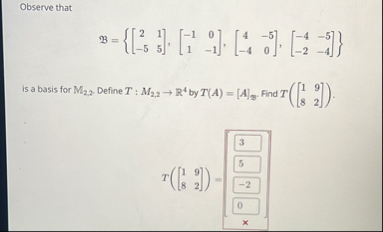 Observe that
𝔅 = {[2 1; −5 5], [−1 0; 1 −1], [4 −5; −4 0], [−4 −5; −2 −4]}
is a basis for M₂,₂. Define T : M₂,₂ → ℝ⁴ by T(A) = [A]𝔅. Find T([1 9; 8 2]).
T([1 9; 8 2]) = [3; 5; −2; 0]
×